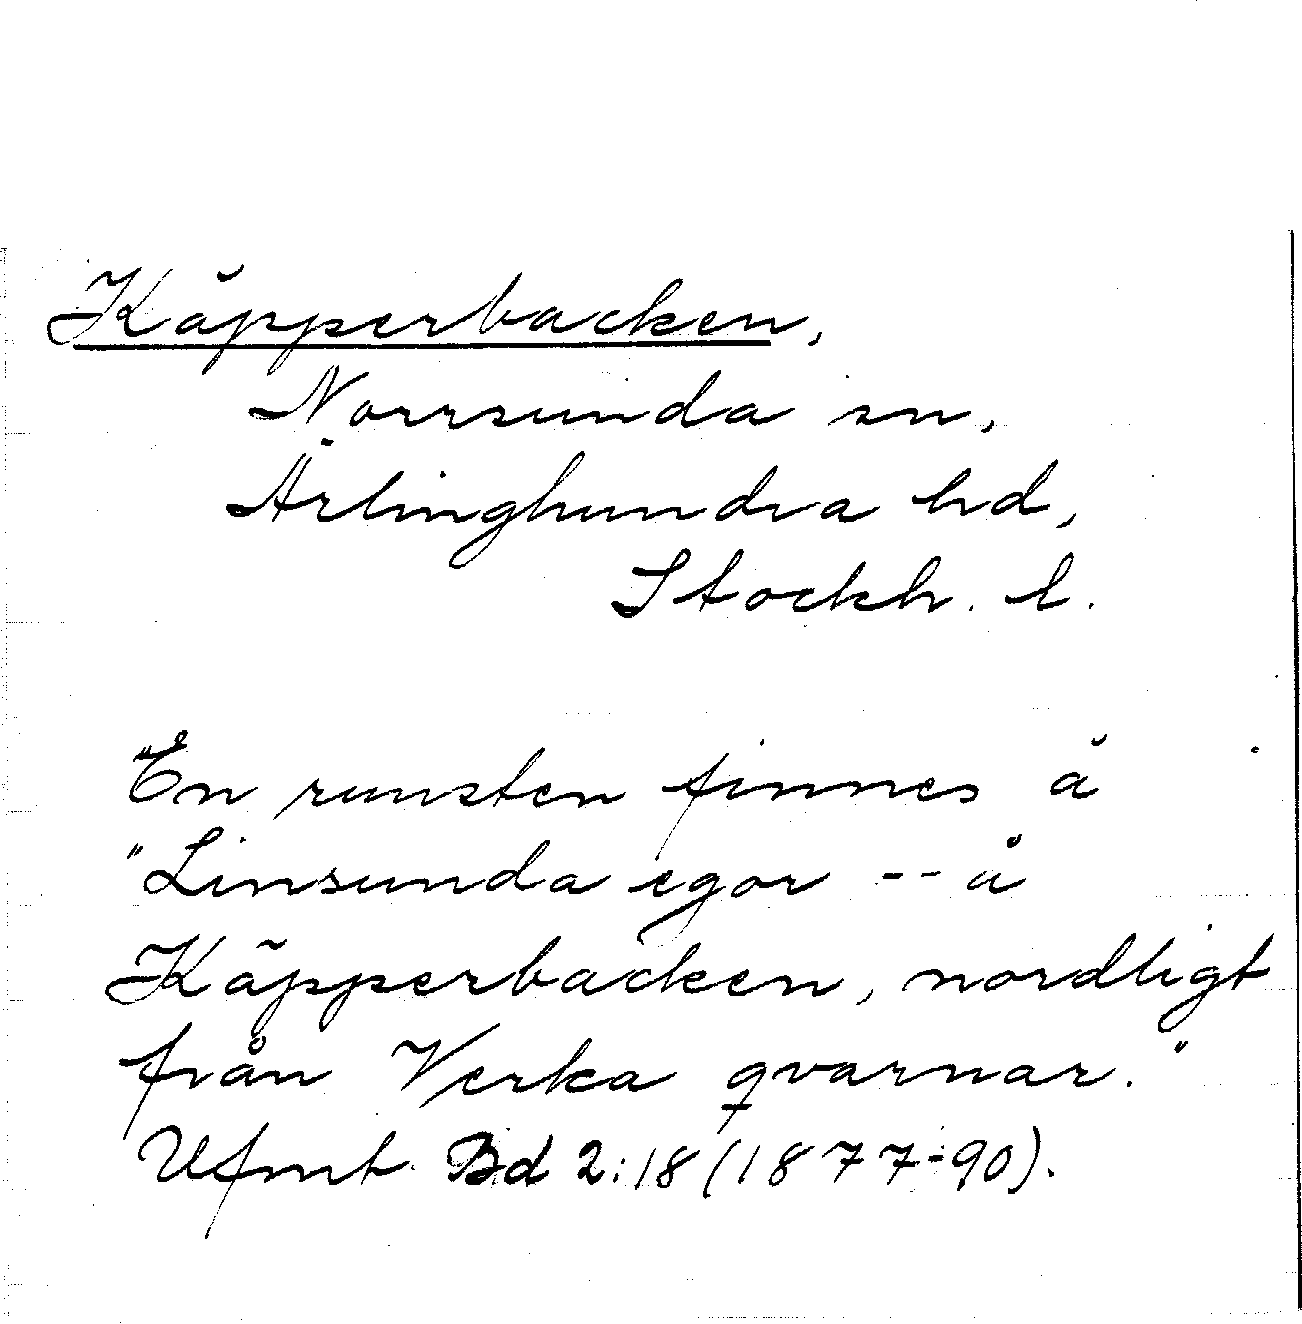 Käpperbacken,
Norrsunda sn,
Ärlinghundra hd,
Stockh. l.
"En runsten finnes å
"Linsunda egor -- å
Käpperbacken, nordligt
från Verka qvarnar."
Ufmt. Bd 2:18 (1877-90).